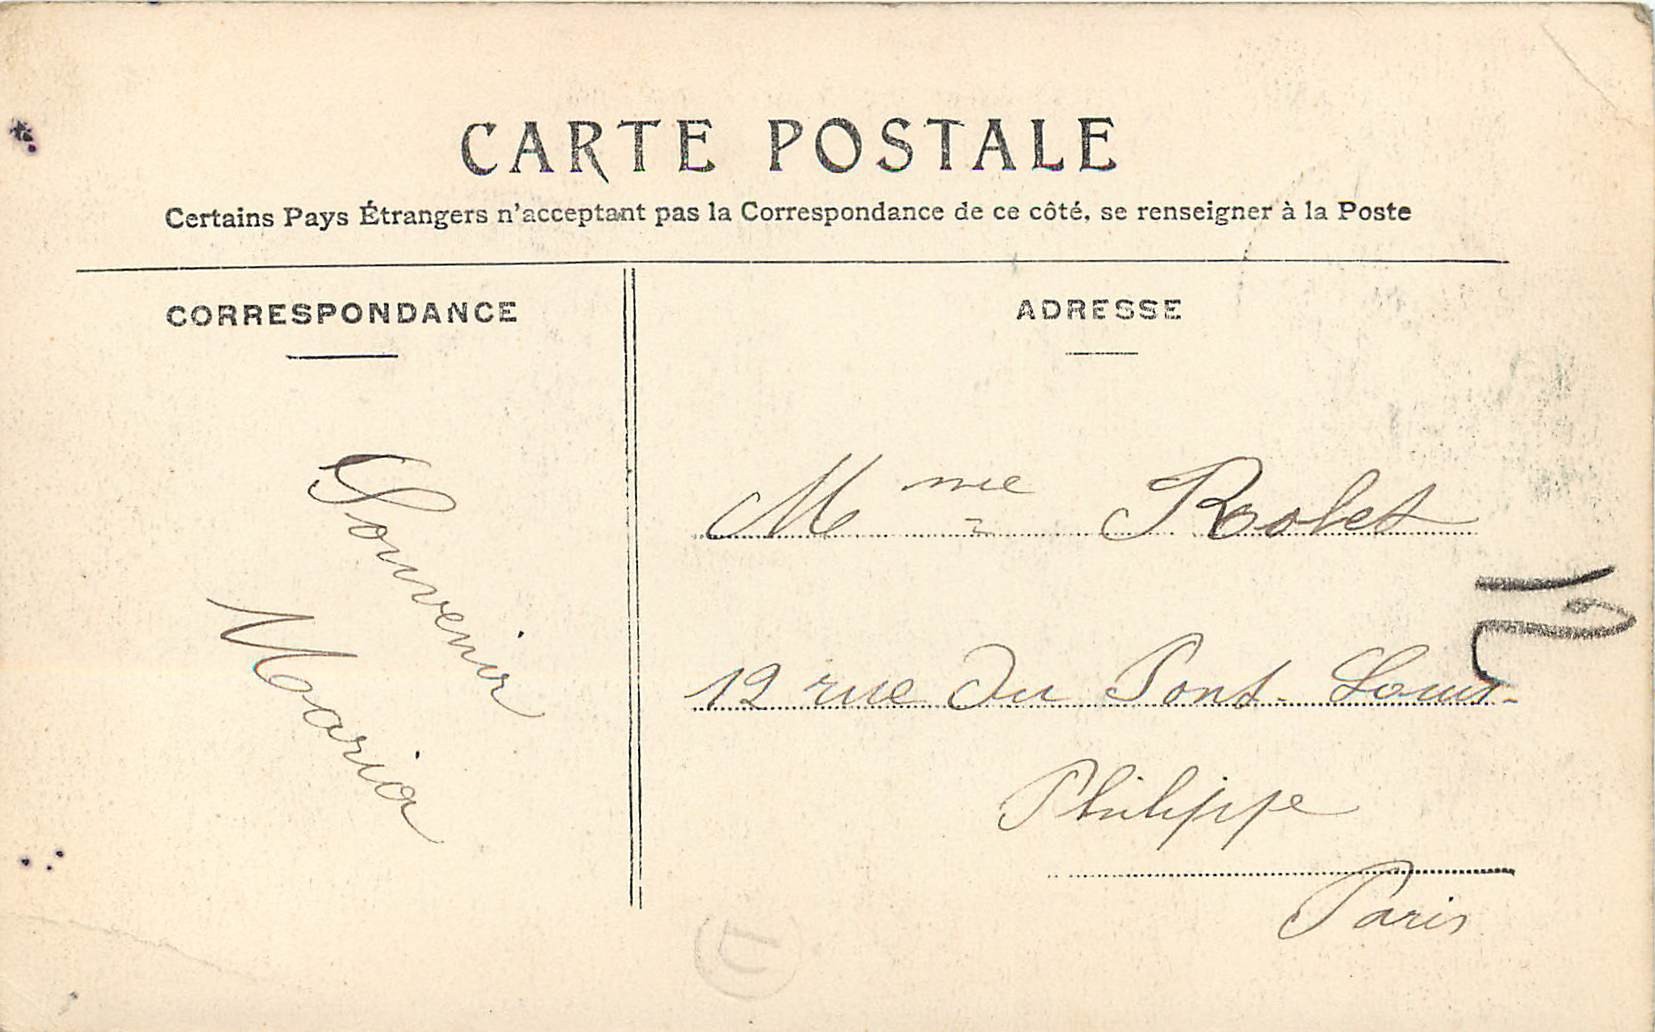 CARTE POSTALE
Certains Pays Étrangers n'acceptant pas la Correspondance de ce côté, se renseigner à la Poste
CORRESPONDANCE
Souvenir
Maria
ADRESSE
Mme Robet
12 rue Du Pont-Louis-
Philippe
Paris